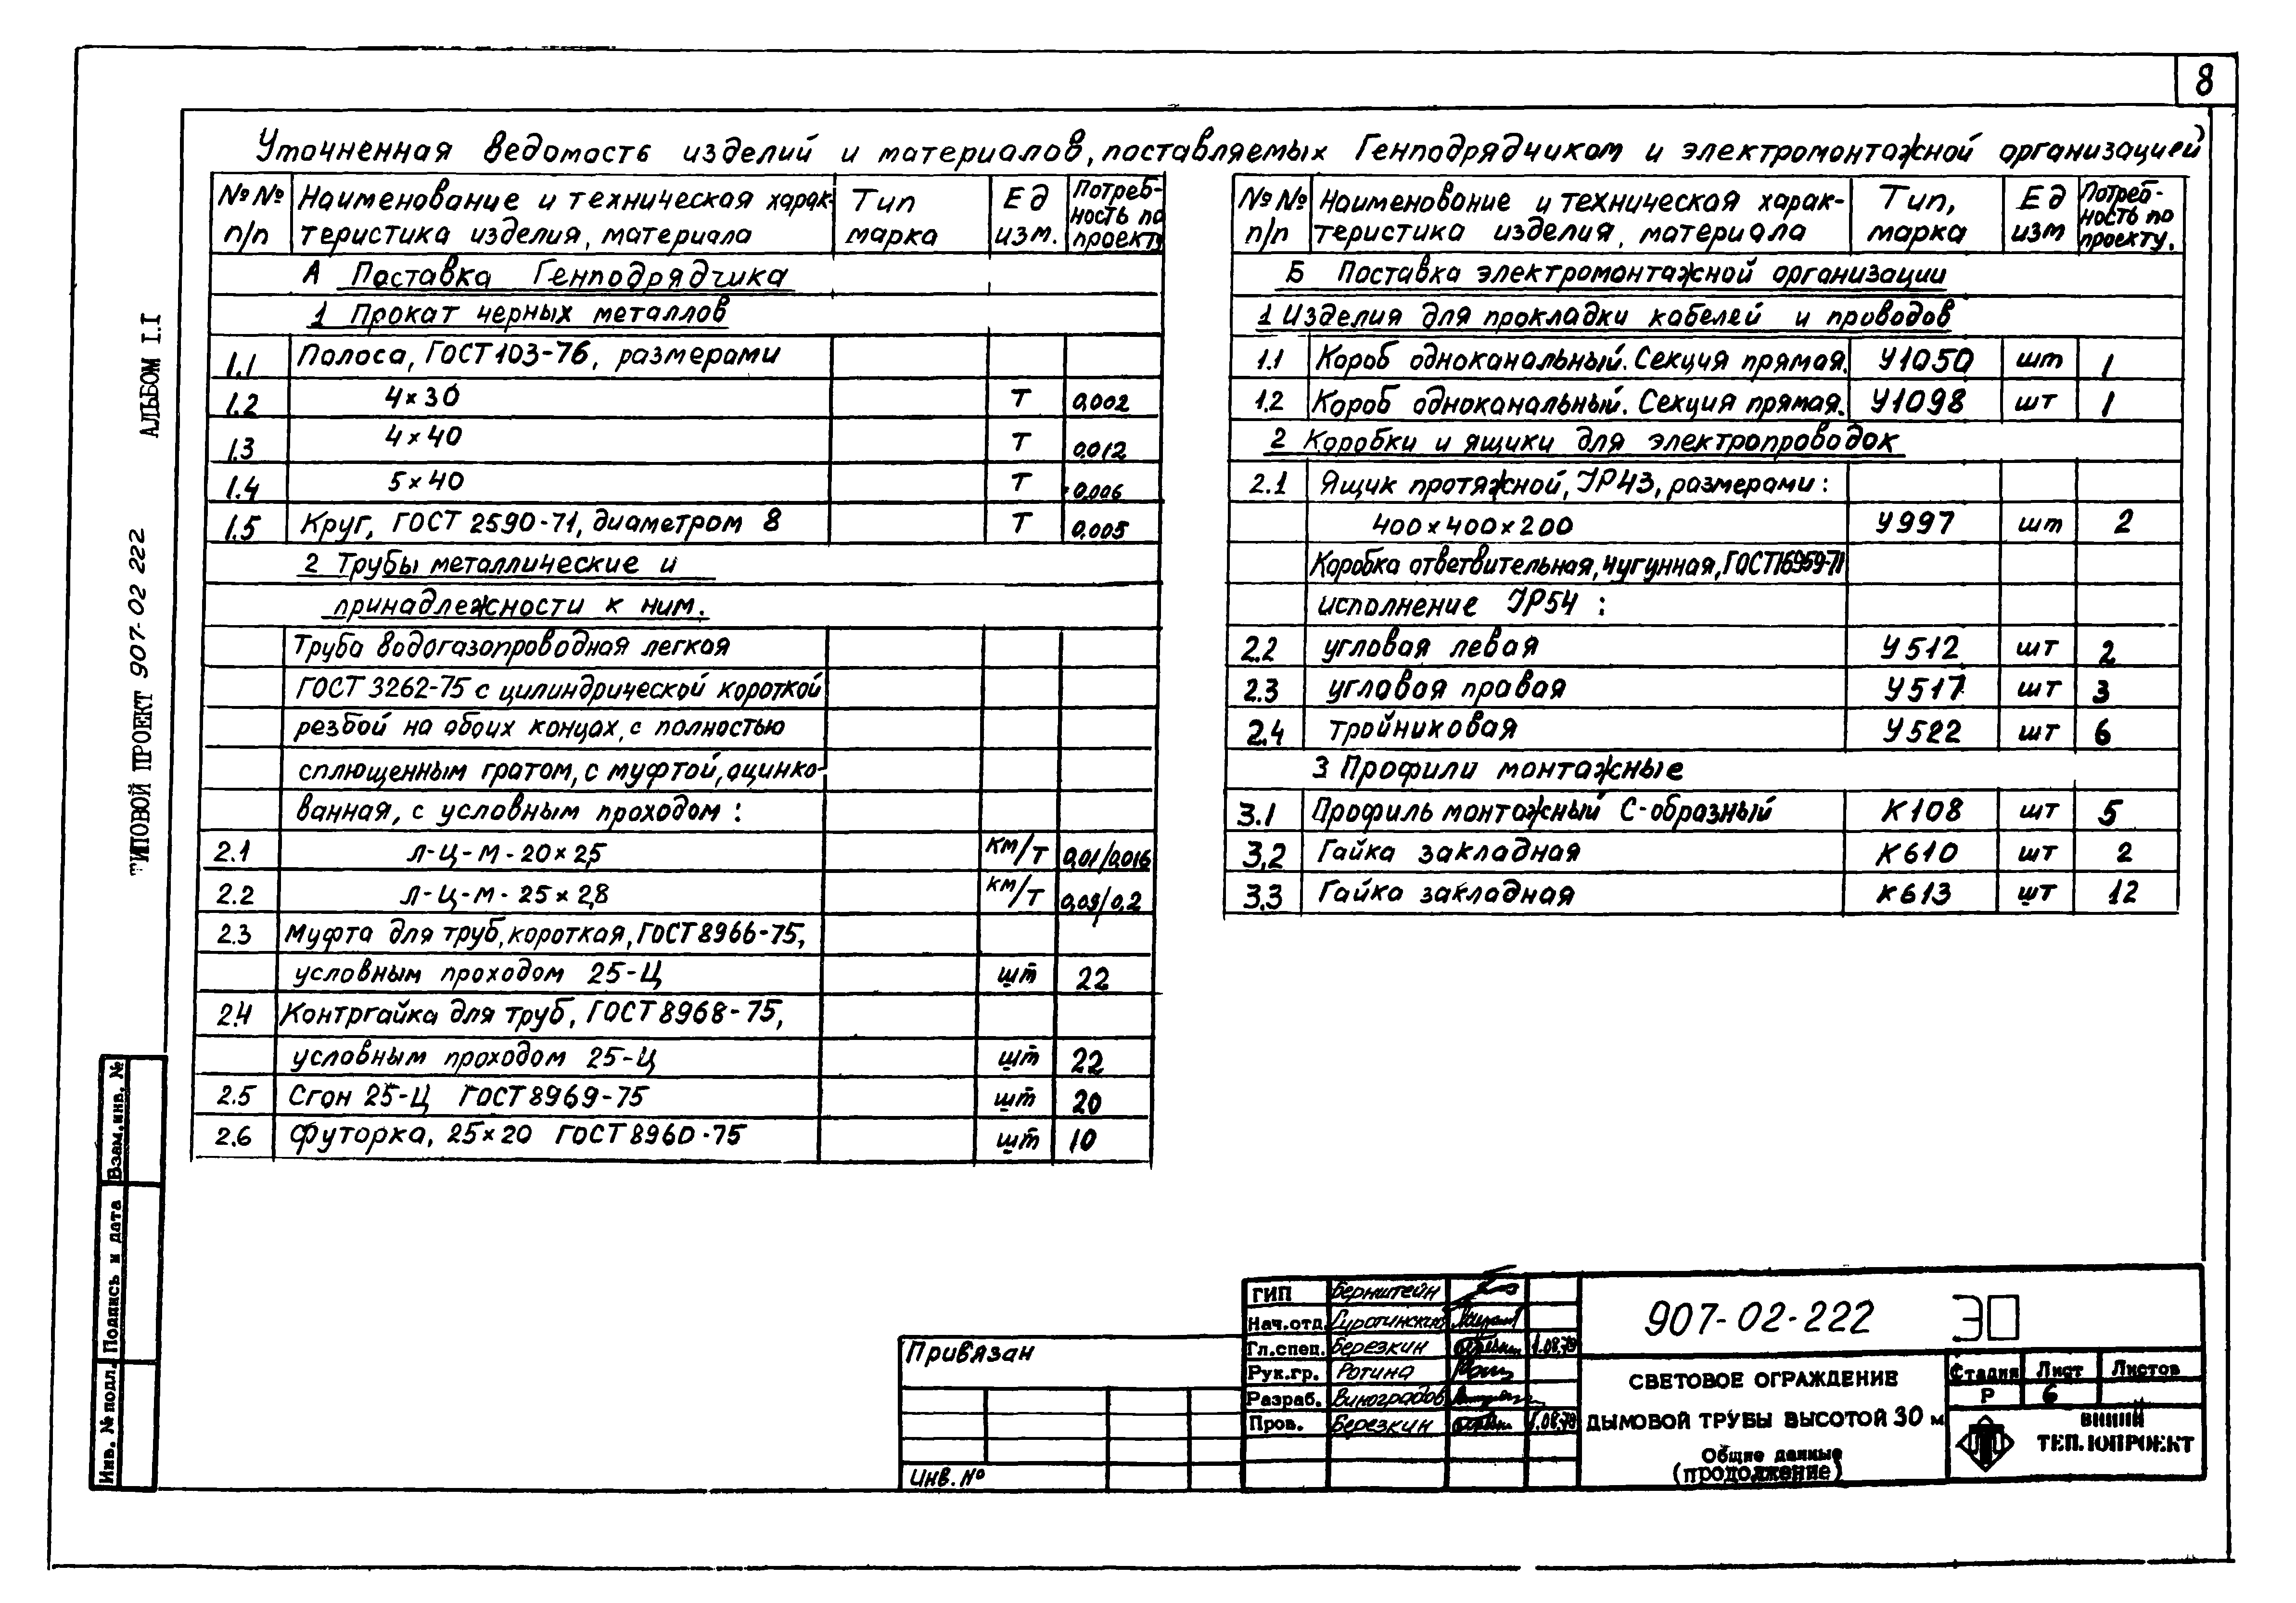 8
Уточненная ведомость изделий и материалов, поставляемых Генподрядчиком и электромонтажной организацией
№№ п/п Наименование и техническая харак-теристика изделия, материала Тип марка Ед изм. Потреб-ность по проекту
А Поставка Генподрядчика
1 Прокат черных металлов
1.1 Полоса, ГОСТ 103-76, размерами
1.2 4×30 Т 0,002
1.3 4×40 Т 0,012
1.4 5×40 Т 0,006
1.5 Круг, ГОСТ 2590-71, диаметром 8 Т 0,005
2 Трубы металлические и
принадлежности к ним.
Труба водогазопроводная легкая
ГОСТ 3262-75 с цилиндрической короткой
резбой на обоих концах, с полностью
сплющенным гратом, с муфтой, оцинко-
ванная, с условным проходом:
2.1 Л-Ц-М-20×2,5 км/т 0,01/0,016
2.2 Л-Ц-М-25×2,8 км/т 0,09/0,2
2.3 Муфта для труб, короткая, ГОСТ 8966-75,
условным проходом 25-Ц шт 22
2.4 Контргайка для труб, ГОСТ 8968-75,
условным проходом 25-Ц шт 22
2.5 Сгон 25-Ц ГОСТ 8969-75 шт 20
2.6 Футорка, 25×20 ГОСТ 8960-75 шт 10
№№ п/п Наименование и техническая харак-теристика изделия, материала Тип, марка Ед изм Потреб-ность по проекту.
Б Поставка электромонтажной организации
1 Изделия для прокладки кабелей и проводов
1.1 Короб одноканальный. Секция прямая. У1050 шт 1
1.2 Короб одноканальный. Секция прямая. У1098 шт 1
2 Коробки и ящики для электропроводок
2.1 Ящик протяжной, IP43, размерами:
400×400×200 У997 шт 2
Коробка ответвительная, чугунная, ГОСТ16959-71
исполнение IP54:
2.2 угловая левая У512 шт 2
2.3 угловая правая У517 шт 3
2.4 тройниковая У522 шт 6
3 Профили монтажные
3.1 Профиль монтажный С-образный К108 шт 5
3.2 Гайка закладная К610 шт 2
3.3 Гайка закладная К613 шт 12
АЛЬБОМ I.I
ТИПОВОЙ ПРОЕКТ 907-02 222
Взам.инв. №
Подпись и дата
Инв. № подл.
Привязан
Инв. №
ГИП Бернштейн
Нач.отд.
Гл.спец. Березкин 1.08.79
Рук.гр. Ротина
Разраб. Виноградов
Пров. Березкин 1.08.79
907-02-222 ЭО
СВЕТОВОЕ ОГРАЖДЕНИЕ
ДЫМОВОЙ ТРУБЫ ВЫСОТОЙ 30 м
Общие данные
(продолжение)
Стадия Лист Листов
Р 6
ВНИПИ
ТЕПЛОПРОЕКТ